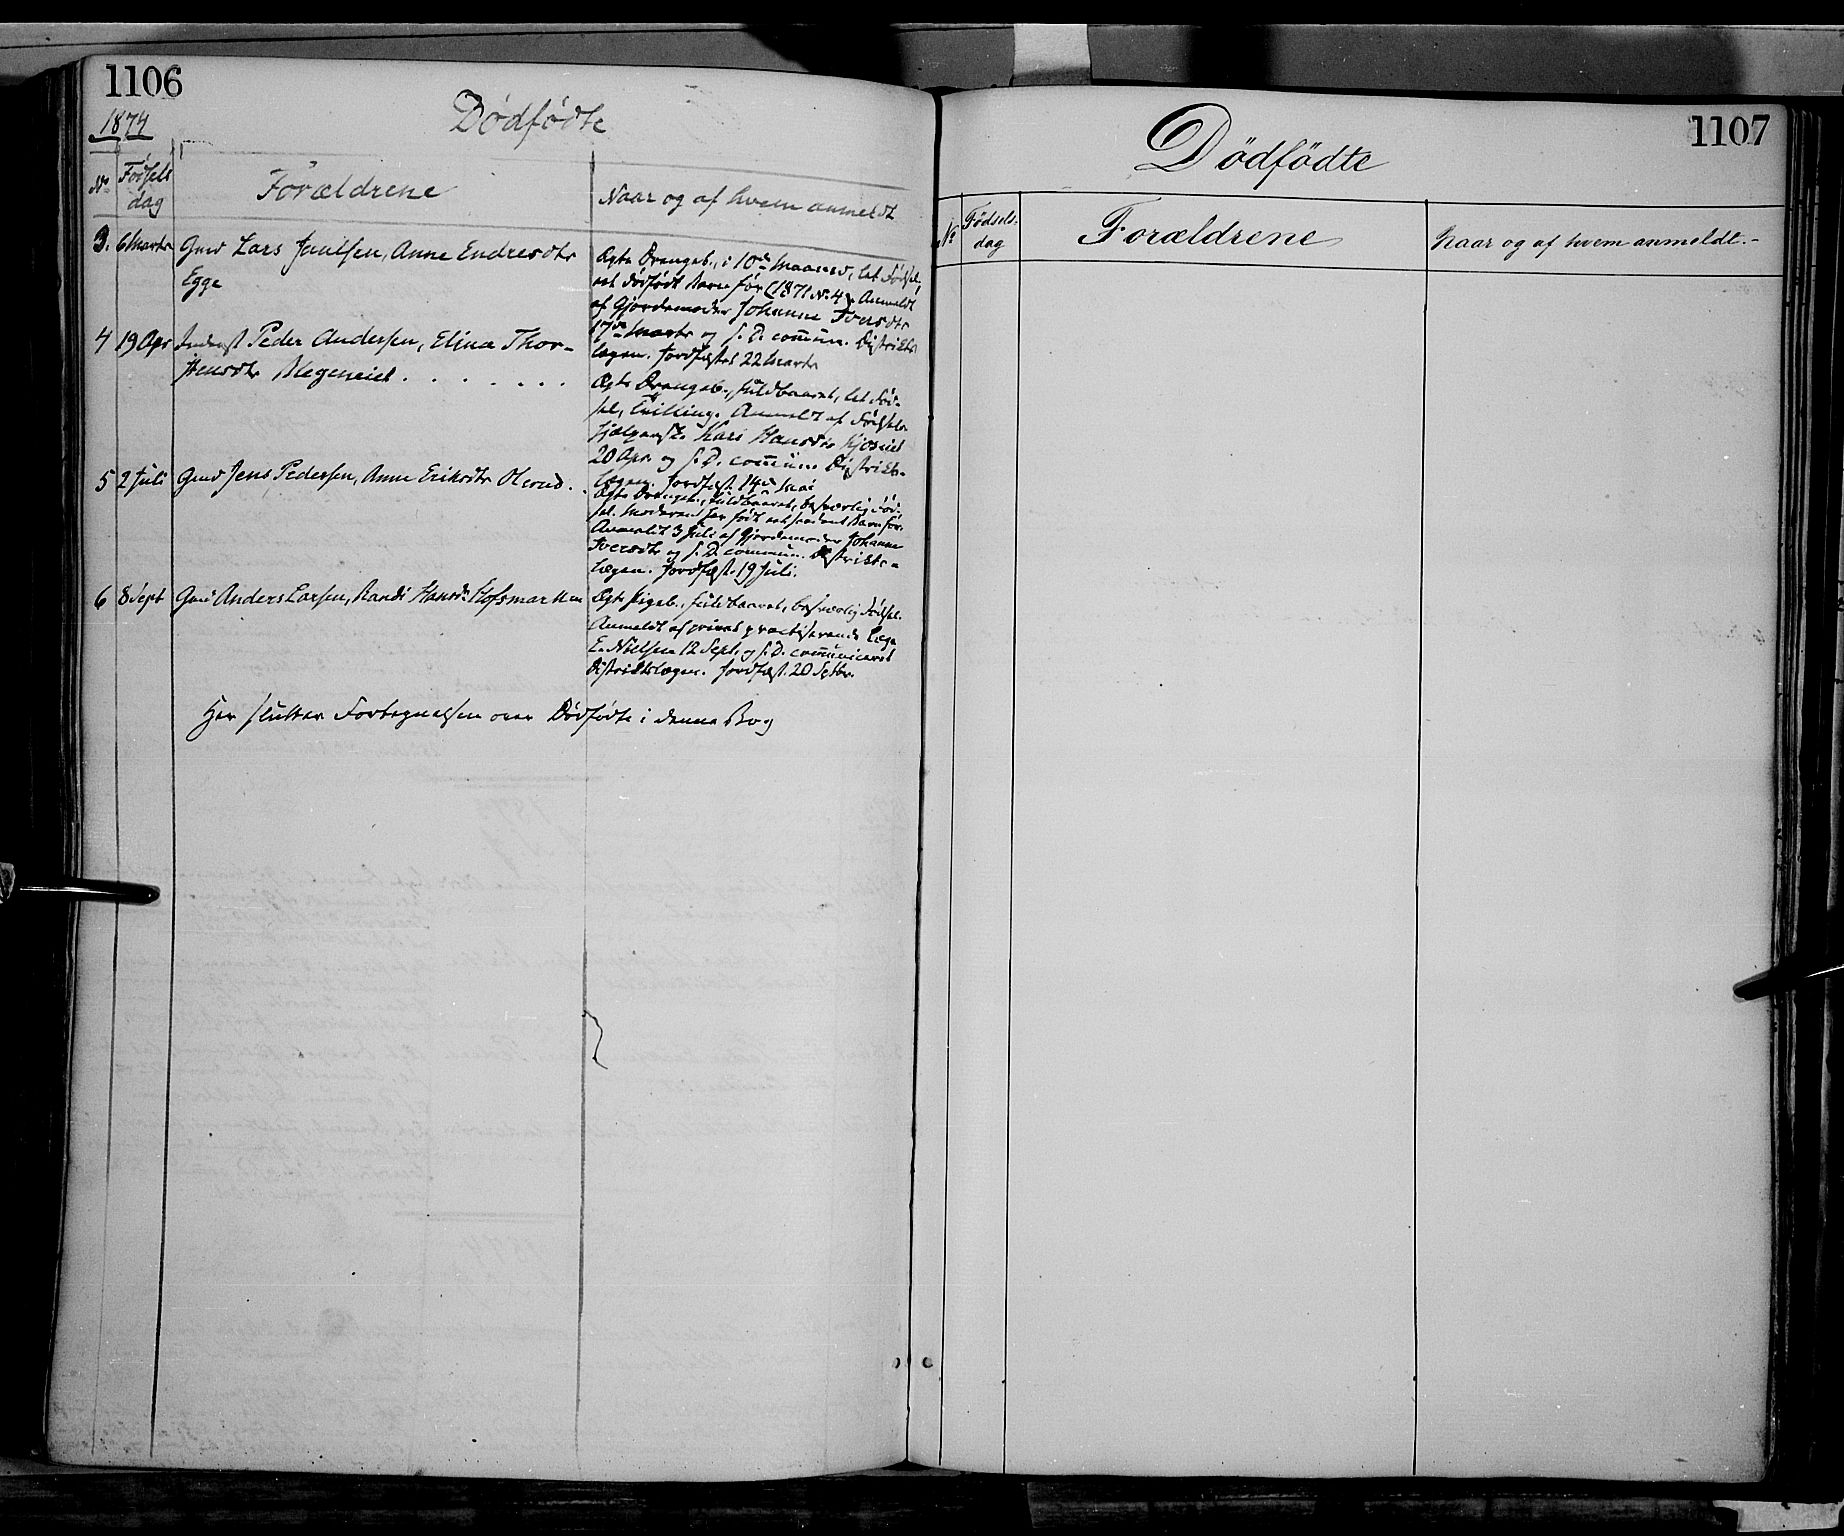 1106
1874
Dødfødte
No
Fødsels
dag
Forældrene
Naar og af hvem anmeldt
3. 6 Marts Gmd Lars Paulsen, Anne Endresdtr
Egge
Ægte Drengeb., i 10de Maaned, let Fødsel,
et dødfødt Barn før (1871 No 4). Anmeldt
af Gjordemoder Johanne Iversdtr
17de Marts og s. D. commun. Distrikts
lægen. Jordfæstet 22 Marts
4 19 Apr Inderst Peder Andersen, Eline Thor-
stensdtr
Ægte Drengeb., fuldbaaret, let Fød-
sel, Tvilling. Anmeldt af Fødsels
hjælperske Kari Hansdtr
20 Apr. og s. D. commun. Distrikts-
lægen. Jordfæst. 14de Mai
5 2 Juli Gmd Jens Pedersen, Anne Eriksdtr Olerud.
Ægte Drengeb., fuldbaaret, besværlig Fød-
sel. Moderen har født et Barn før.
Anmeldt 3 Juli af Gjordemoder Johanne
Iversdtr og s. D. commun. Distrikts-
lægen. Jordfæst. 19 Juli.
6 8 Sept Gmd Anders Larsen, Randi Hansdtr Hofsmarken
Ægte Pigeb., fuldbaaret, besværlig Fødsel.
Anmeldt af privat practiserende Læge
E. Nielsen 12 Sept. og s. D. communiceret
Distriktslægen. Jordfæst. 20 Septbr.
Her slutter Fortegnelsen over Dødfødte i denne Bog
1107
Dødfödte
No
Födsels-
dag
Forældrene
Naar og af hvem anmeldt.-